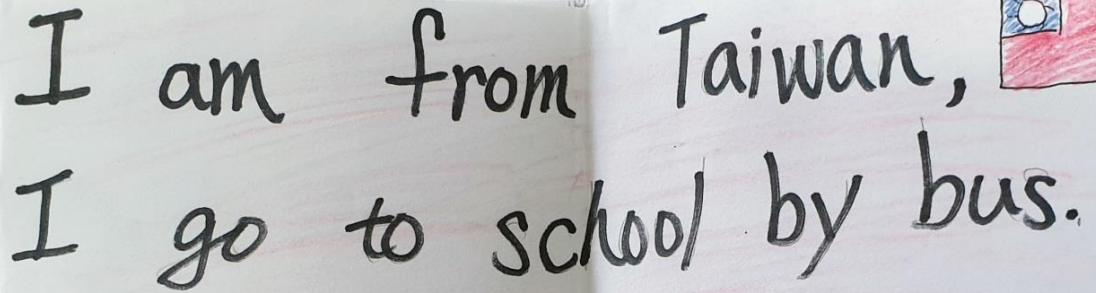 I am from Taiwan,
I go to school by bus.